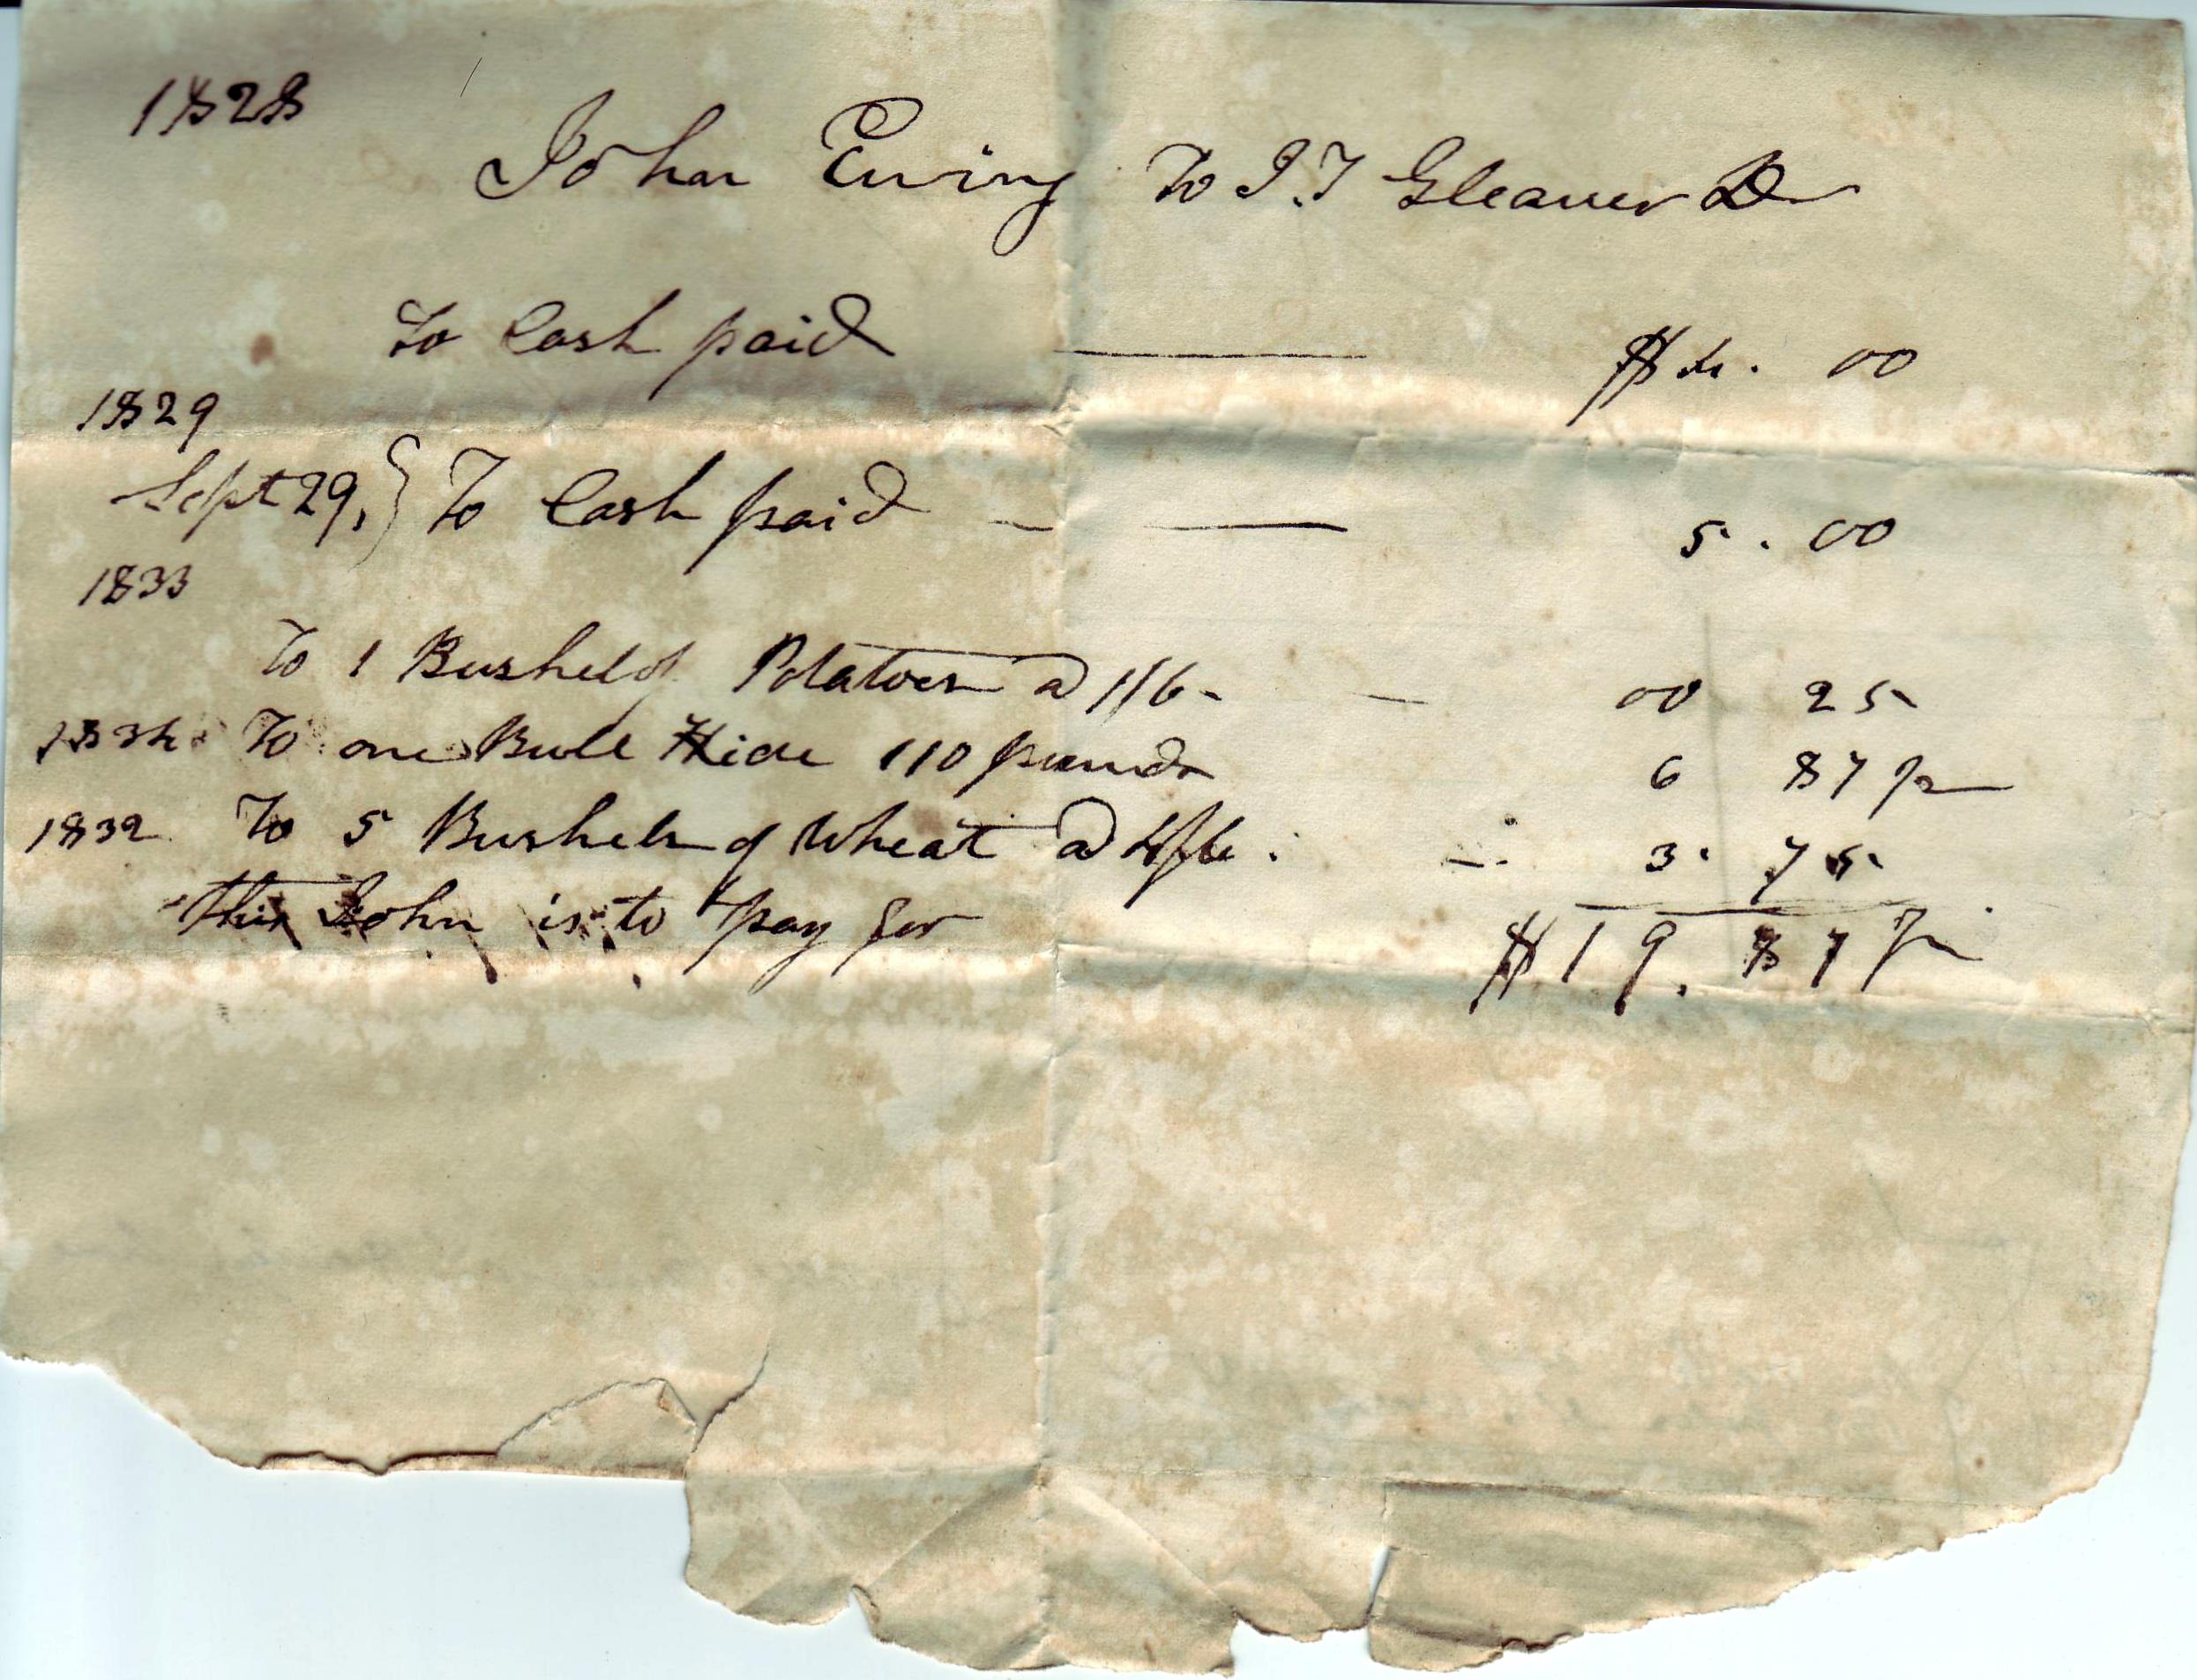 1828
John Ewing To J.T Gleaver Dr
To Cash paid $4. 00
1829
Sept 29, } To Cash paid - 5. 00
1833
To 1 Bushel of Potatoes @ 1/6 - 00 25
1834 To one Bull Hide 110 pounds 6 87 ½
1832 To 5 Bushels of Wheat @ 4/6 3. 75
this John is to pay for $19. 87 ½